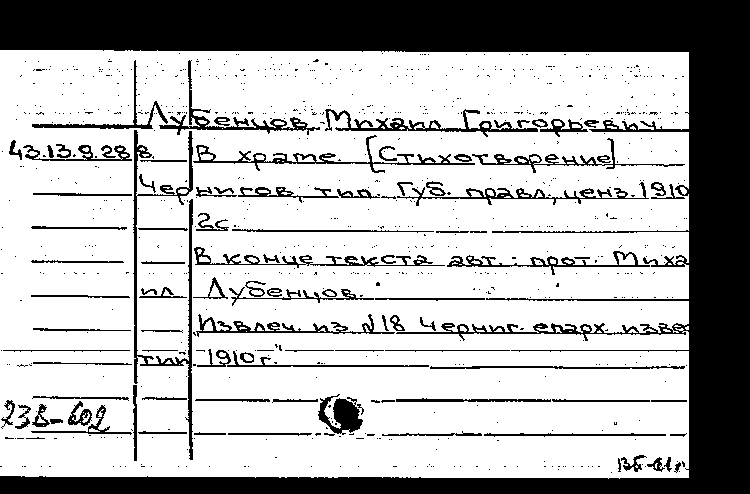 Лубенцов, Михаил Григорьевич.
43.13.9.288. В храме. [Стихотворение]
Чернигов, тип. Губ. правл., ценз. 1910
2с.
В конце текста авт.: прот. Миха
ил Лубенцов.
"Извлеч. из №18 Черниг. епарх. изве
тий 1910г."
23В-602